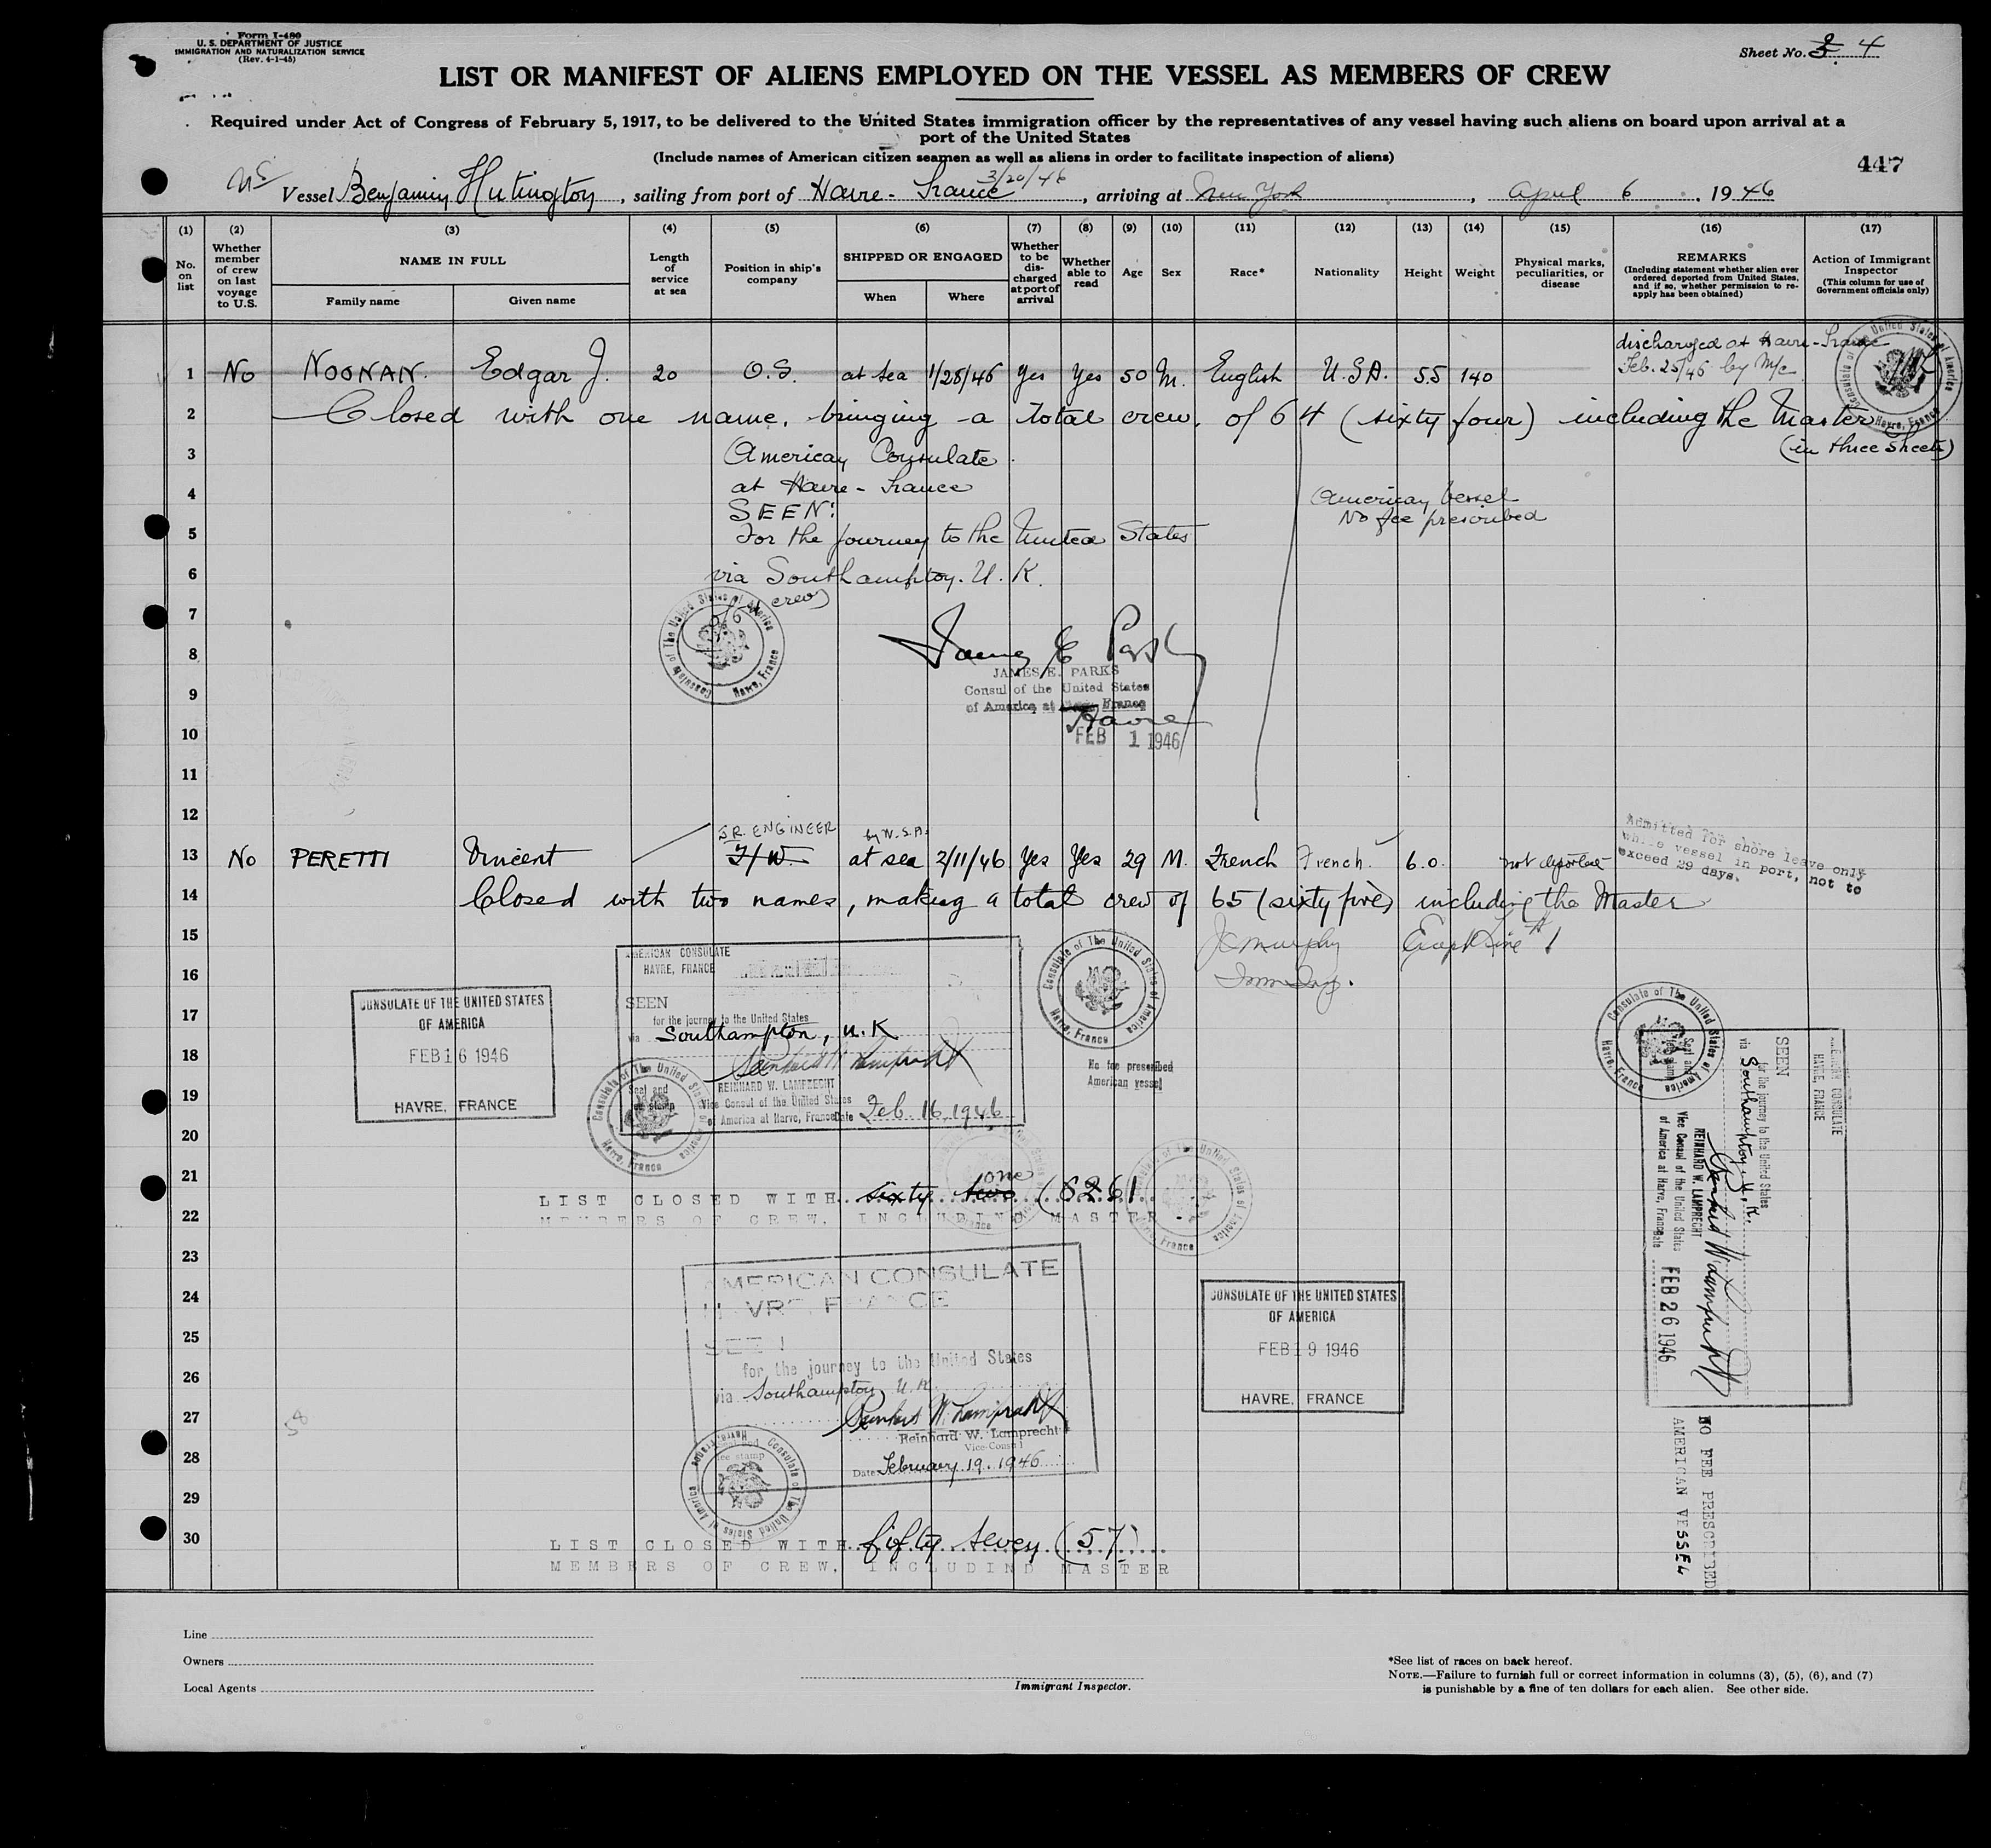 Form I-480
U. S. DEPARTMENT OF JUSTICE
IMMIGRATION AND NATURALIZATION SERVICE
(Rev. 4-1-45)
Sheet No. 3 4
LIST OR MANIFEST OF ALIENS EMPLOYED ON THE VESSEL AS MEMBERS OF CREW
Required under Act of Congress of February 5, 1917, to be delivered to the United States immigration officer by the representatives of any vessel having such aliens on board upon arrival at a
port of the United States
(Include names of American citizen seamen as well as aliens in order to facilitate inspection of aliens)
447
3/20/46
Vessel Benjamin Hutington, sailing from port of Havre - France, arriving at New York, April 6, 1946
(1) (2) (3) (4) (5) (6) (7) (8) (9) (10) (11) (12) (13) (14) (15) (16) (17)
No. on list
Whether member of crew on last voyage to U.S.
NAME IN FULL
Family name
Given name
Length of service at sea
Position in ship's company
SHIPPED OR ENGAGED
When
Where
Whether to be discharged at port of arrival
Whether able to read
Age
Sex
Race*
Nationality
Height
Weight
Physical marks, peculiarities, or disease
REMARKS
(Including statement whether alien ever ordered deported from United States, and if so, whether permission to re-apply has been obtained)
Action of Immigrant Inspector
(This column for use of Government officials only)
discharged at Havre - France
Feb. 25/46 by M/c
1 No NOONAN. Edgar J. 20 O.S. at sea 1/28/46 Yes Yes 50 M. English U.S.A. 5.5 140
2 Closed with one name, bringing a total crew of 64 (sixty four) including the Master
(in three sheets)
3 American Consulate
4 at Havre - France
SEEN:
American vessel
No fee prescribed
5 For the journey to the United States
6 via Southampton. U. K.
crew
7
Consulate of The United States of America
Havre, France
8
JAMES E. PARKS
9 Consul of the United States
of America at France
Havre
10 FEB 1 1946
11
12
JR. ENGINEER
by W.S.A.
Admitted for shore leave only
while vessel in port, not to
exceed 29 days.
13 No PERETTI Vincent F/W. at sea 2/11/46 Yes Yes 29 M. French French 6.0. not deported
14 Closed with two names, making a total crew of 65 (sixty five) including the Master
15 JC Murphy
16
AMERICAN CONSULATE
HAVRE, FRANCE
SEEN
for the journey to the United States
via Southampton, U.K
REINHARD W. LAMPRECHT
Vice Consul of the United States
of America at Havre, France Date Feb. 16 1946
Seal and
fee stamp
CONSULATE OF THE UNITED STATES
OF AMERICA
FEB 16 1946
HAVRE, FRANCE
Consulate of The United States of America
Havre, France
No fee prescribed
American vessel
17
18
19
20
21 LIST CLOSED WITH sixty two one (62 61
22 MEMBERS OF CREW, INCLUDIND MASTER
23
AMERICAN CONSULATE
HAVRE, FRANCE
24
25 SEEN
for the journey to the United States
26 via Southampton, U.K.
27
Reinhard W. Lamprecht
Vice-Consul
28 Date February 19. 1946
fee stamp
Consulate of The United States of America
29
CONSULATE OF THE UNITED STATES
OF AMERICA
FEB 19 1946
HAVRE, FRANCE
30 LIST CLOSED WITH fifty seven (57)
MEMBERS OF CREW, INCLUDIND MASTER
Consulate of The United States of America
Havre, France
AMERICAN CONSULATE
HAVRE, FRANCE
SEEN
for the journey to the United States
via Southampton U.K.
Reinhard W Lamprecht
REINHARD W. LAMPRECHT
Vice Consul of the United States
of America at Havre, France Date FEB 26 1946
NO FEE PRESCRIBED
AMERICAN VESSEL
Line
Owners
Local Agents
Immigrant Inspector.
*See list of races on back hereof.
NOTE.—Failure to furnish full or correct information in columns (3), (5), (6), and (7)
is punishable by a fine of ten dollars for each alien. See other side.